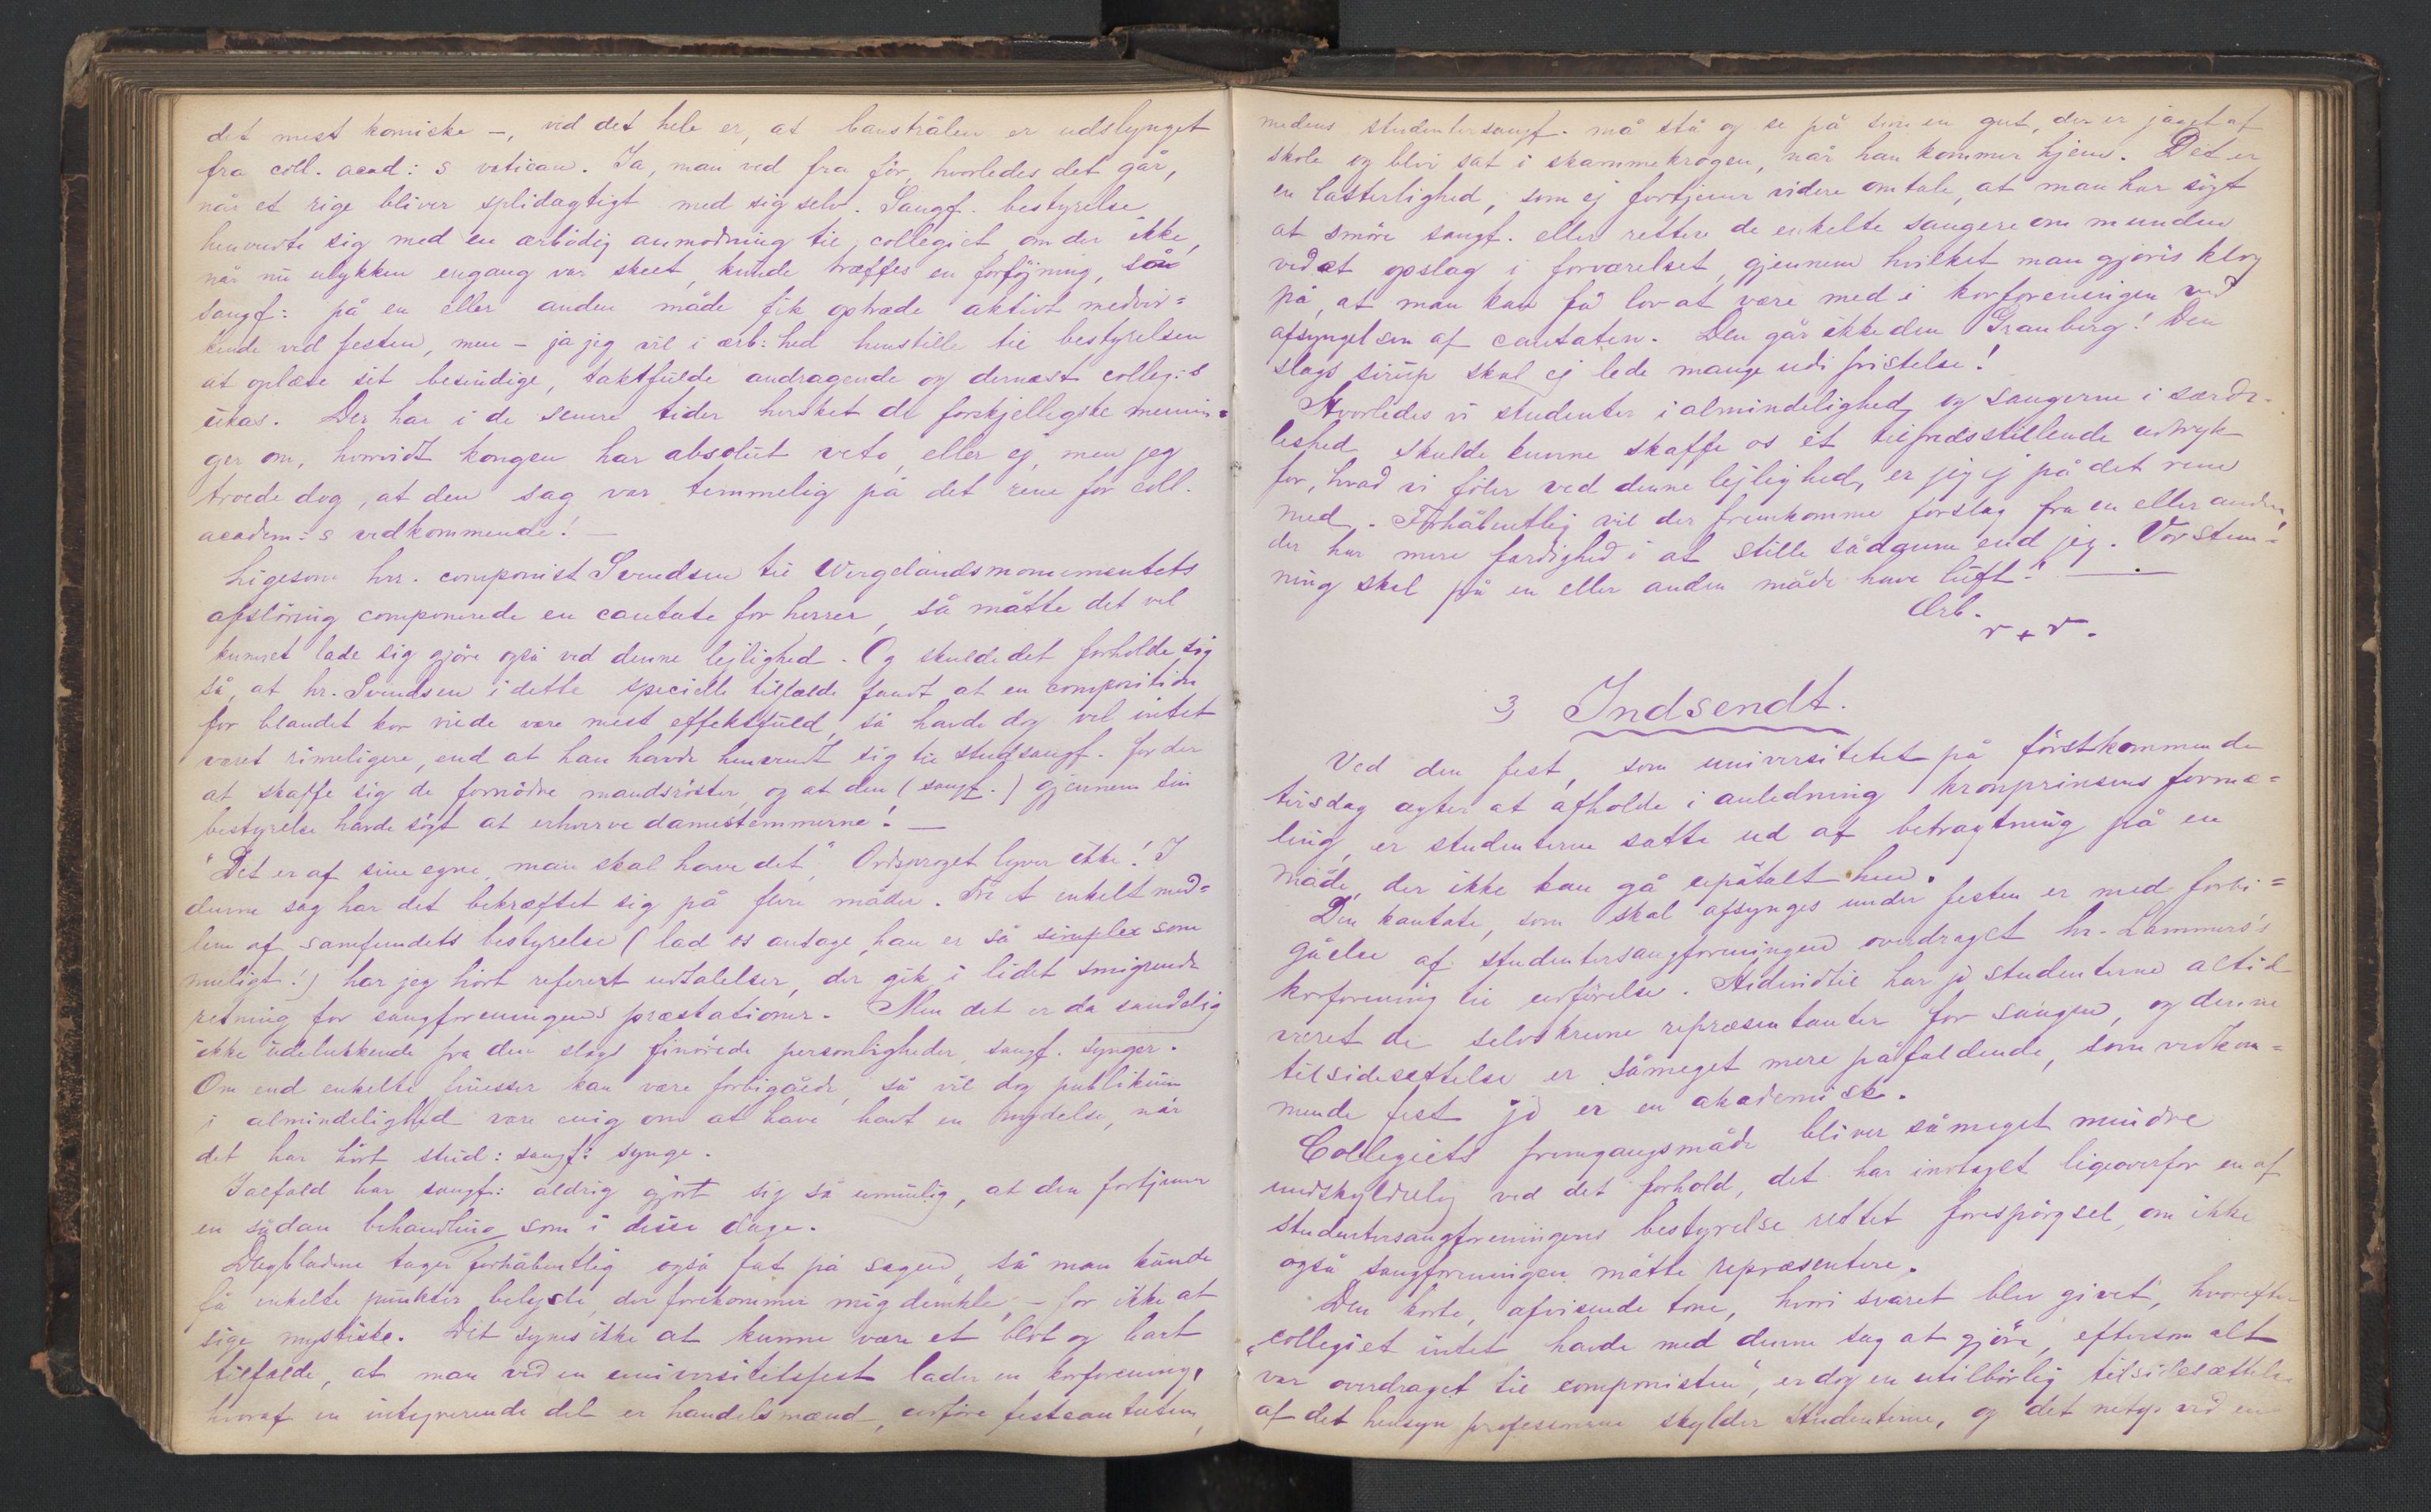 det mest komiske –, ved det hele er, at banstrålen er udslynget
fra coll. acad: s vatican. Ja, man ved fra för, hvorledes det går,
når et rige bliver splidagtigt med sig selv. Sangf. bestyrelse
henvendte sig med en ærbödig anmodning til collegiet om der ikke,
når nu ulykken engang var skeet, kunde træffes en forföjning, så
sangf: på en eller anden måde fik optræde aktivt medvir=
kende ved festen, men – ja jeg vil i ærb:hed henstille til bestyrelsen
at oplæse sit besindige, taktfulde andragende og dernæst colleg:s
ukas. Der har i de senere tider hersket de forskjelligste menin=
ger om, hvorvidt kongen har absolut veto, eller ej, men jeg
troede dog, at den sag var temmelig på det rene for coll.
academ:s vedkommende! –
Ligesom hrr. componist Svendsen til Wergelandsmonumentets
afslöring componerede en cantate for herrer, så måtte det vel
kunnet lade sig gjöre også ved denne lejlighed. Og skulde det forholde sig
så, at hr. Svendsen i dette specielle tilfælde fandt at en composition
for blandet kor vilde være mest effektfuld, så havde dog vel intet
været rimeligere, end at han havde henvendt sig til studsangf. for der
at skaffe sig de fornödne mandsröster, og at den (sangf.) gjennem sin
bestyrelse havde sögt at erhverve damestemmerne! –
"Det er af sine egne, man skal have det." Ordsproget lyver ikke! I
denne sag har det bekræftet sig på flere måder. Fra et enkelt med=
lem af samfundets bestyrelse (lad os antage, han er så simplex som
muligt!) har jeg hört refereret udtalelser, der gik i lidet smigrende
retning for sangforeningens præstationer. Men det er da sandelig
ikke udelukkende fra den slags finörede personligheder, sangf. synger.
Om end enkelte finesser kan være forbigåede, så vil dog publikum
i almindelighed være enig om at have havt en nydelse, når
det har hört stud: sangf: synge.
Ialfald har sangf: aldrig gjort sig så umulig, at den fortjener
en sådan behandling som i disse dage.
Dagbladene tager forhåbentlig også fat på sagen, så man kunde
få enkelte punkter belyste, der forekommer mig dunkle, – for ikke at
sige mystiske. Det synes ikke at kunne være et blot og bart
tilfælde, at man ved en universitetsfest lader en korforening,
hvoraf en integrerende del er handelsmænd, udföre festcantaten,
medens studentersangf. må stå og se på som en gut, der er jaget af
skole og blir sat i skammekrogen, når han kommer hjem. Det er
en latterlighed, som ej fortjener videre omtale, at man har sögt
at smöre sangf. eller rettere de enkelte sangere om munden
ved et opslag i forværelset, gjennem hvilket man gjöres klog
på, at man kan få lov at være med i korforeningen ved
afsyngelsen af cantaten. Den går ikke den Granberg! Den
slags sirup skal ej lede mange udi fristelse!
Hvorledes vi studenter i almindelighed og sangerne i særde=
leshed skulde kunne skaffe os et tilfredsstillende udtryk
for, hvad vi föler ved denne lejlighed, er jeg ej på det rene
med. Forhåbentlig vil der fremkomme forslag fra en eller anden,
der har mere færdighed i at stille sådanne end jeg. Vor stem=
ning skal på en eller anden måde have luft." –
Ærb.
r + r.
3) Indsendt.
Ved den fest, som universitetet på förstkommende
tirsdag agter at afholde i anledning kronprinsens formæ=
ling, er studenterne satte ud af betragtning på en
måde, der ikke kan gå upåtalt hen.
Den kantate, som skal afsynges under festen er med forbi=
gåelse af studentersangforeningen overdraget hr. Lammers's
korforening til udförelse. Hidindtil har jo studenterne altid
været de selvskrevne repræsentanter for sangen, og denne
tilsidesættelse er såmeget mere påfaldende, som vedkom=
mende fest jo er en akademisk.
Collegiets fremgangsmåde bliver såmeget mindre
undskyldelig ved det forhold, det har indtaget ligeoverfor en af
studentersangforeningens bestyrelse rettet forespörgsel, om ikke
også sangforeningen måtte repræsentere.
Den korte, afvisende tone, hvori svaret blev givet, hvorefter
"collegiet intet havde med denne sag at gjöre, eftersom alt
var overdraget til componisten", er dog en utilbörlig tilsidesættelse
af det hensyn professorerne skylder studenterne, og det netop ved en